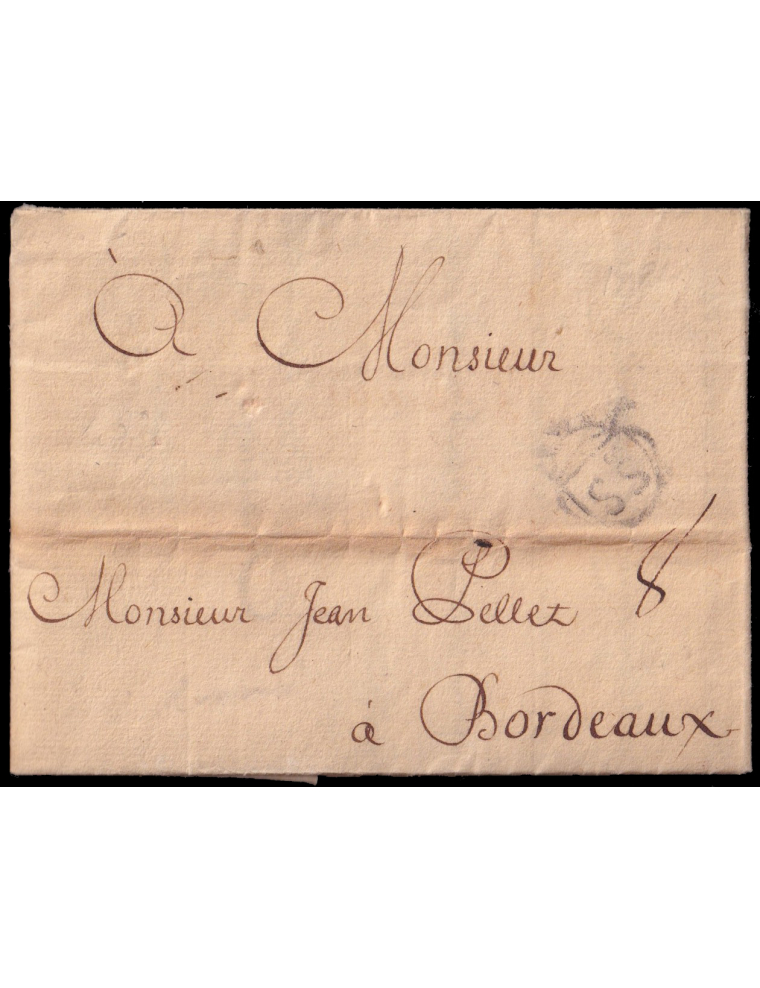 À Monsieur
Monsieur Jean Pellet 8
à Bordeaux